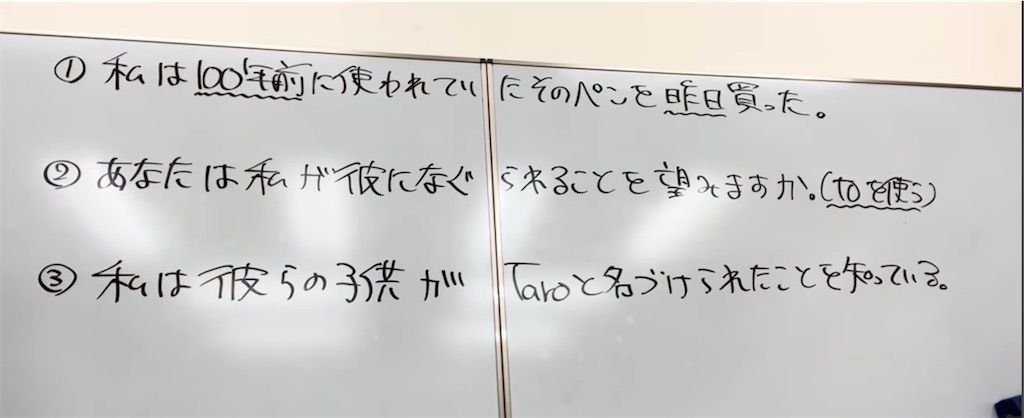 ① 私は100年前に使われていたそのペンを昨日買った。
② あなたは私が彼になぐられることを望みますか。(toを使う)
③ 私は彼らの子供がTaroと名づけられたことを知っている。